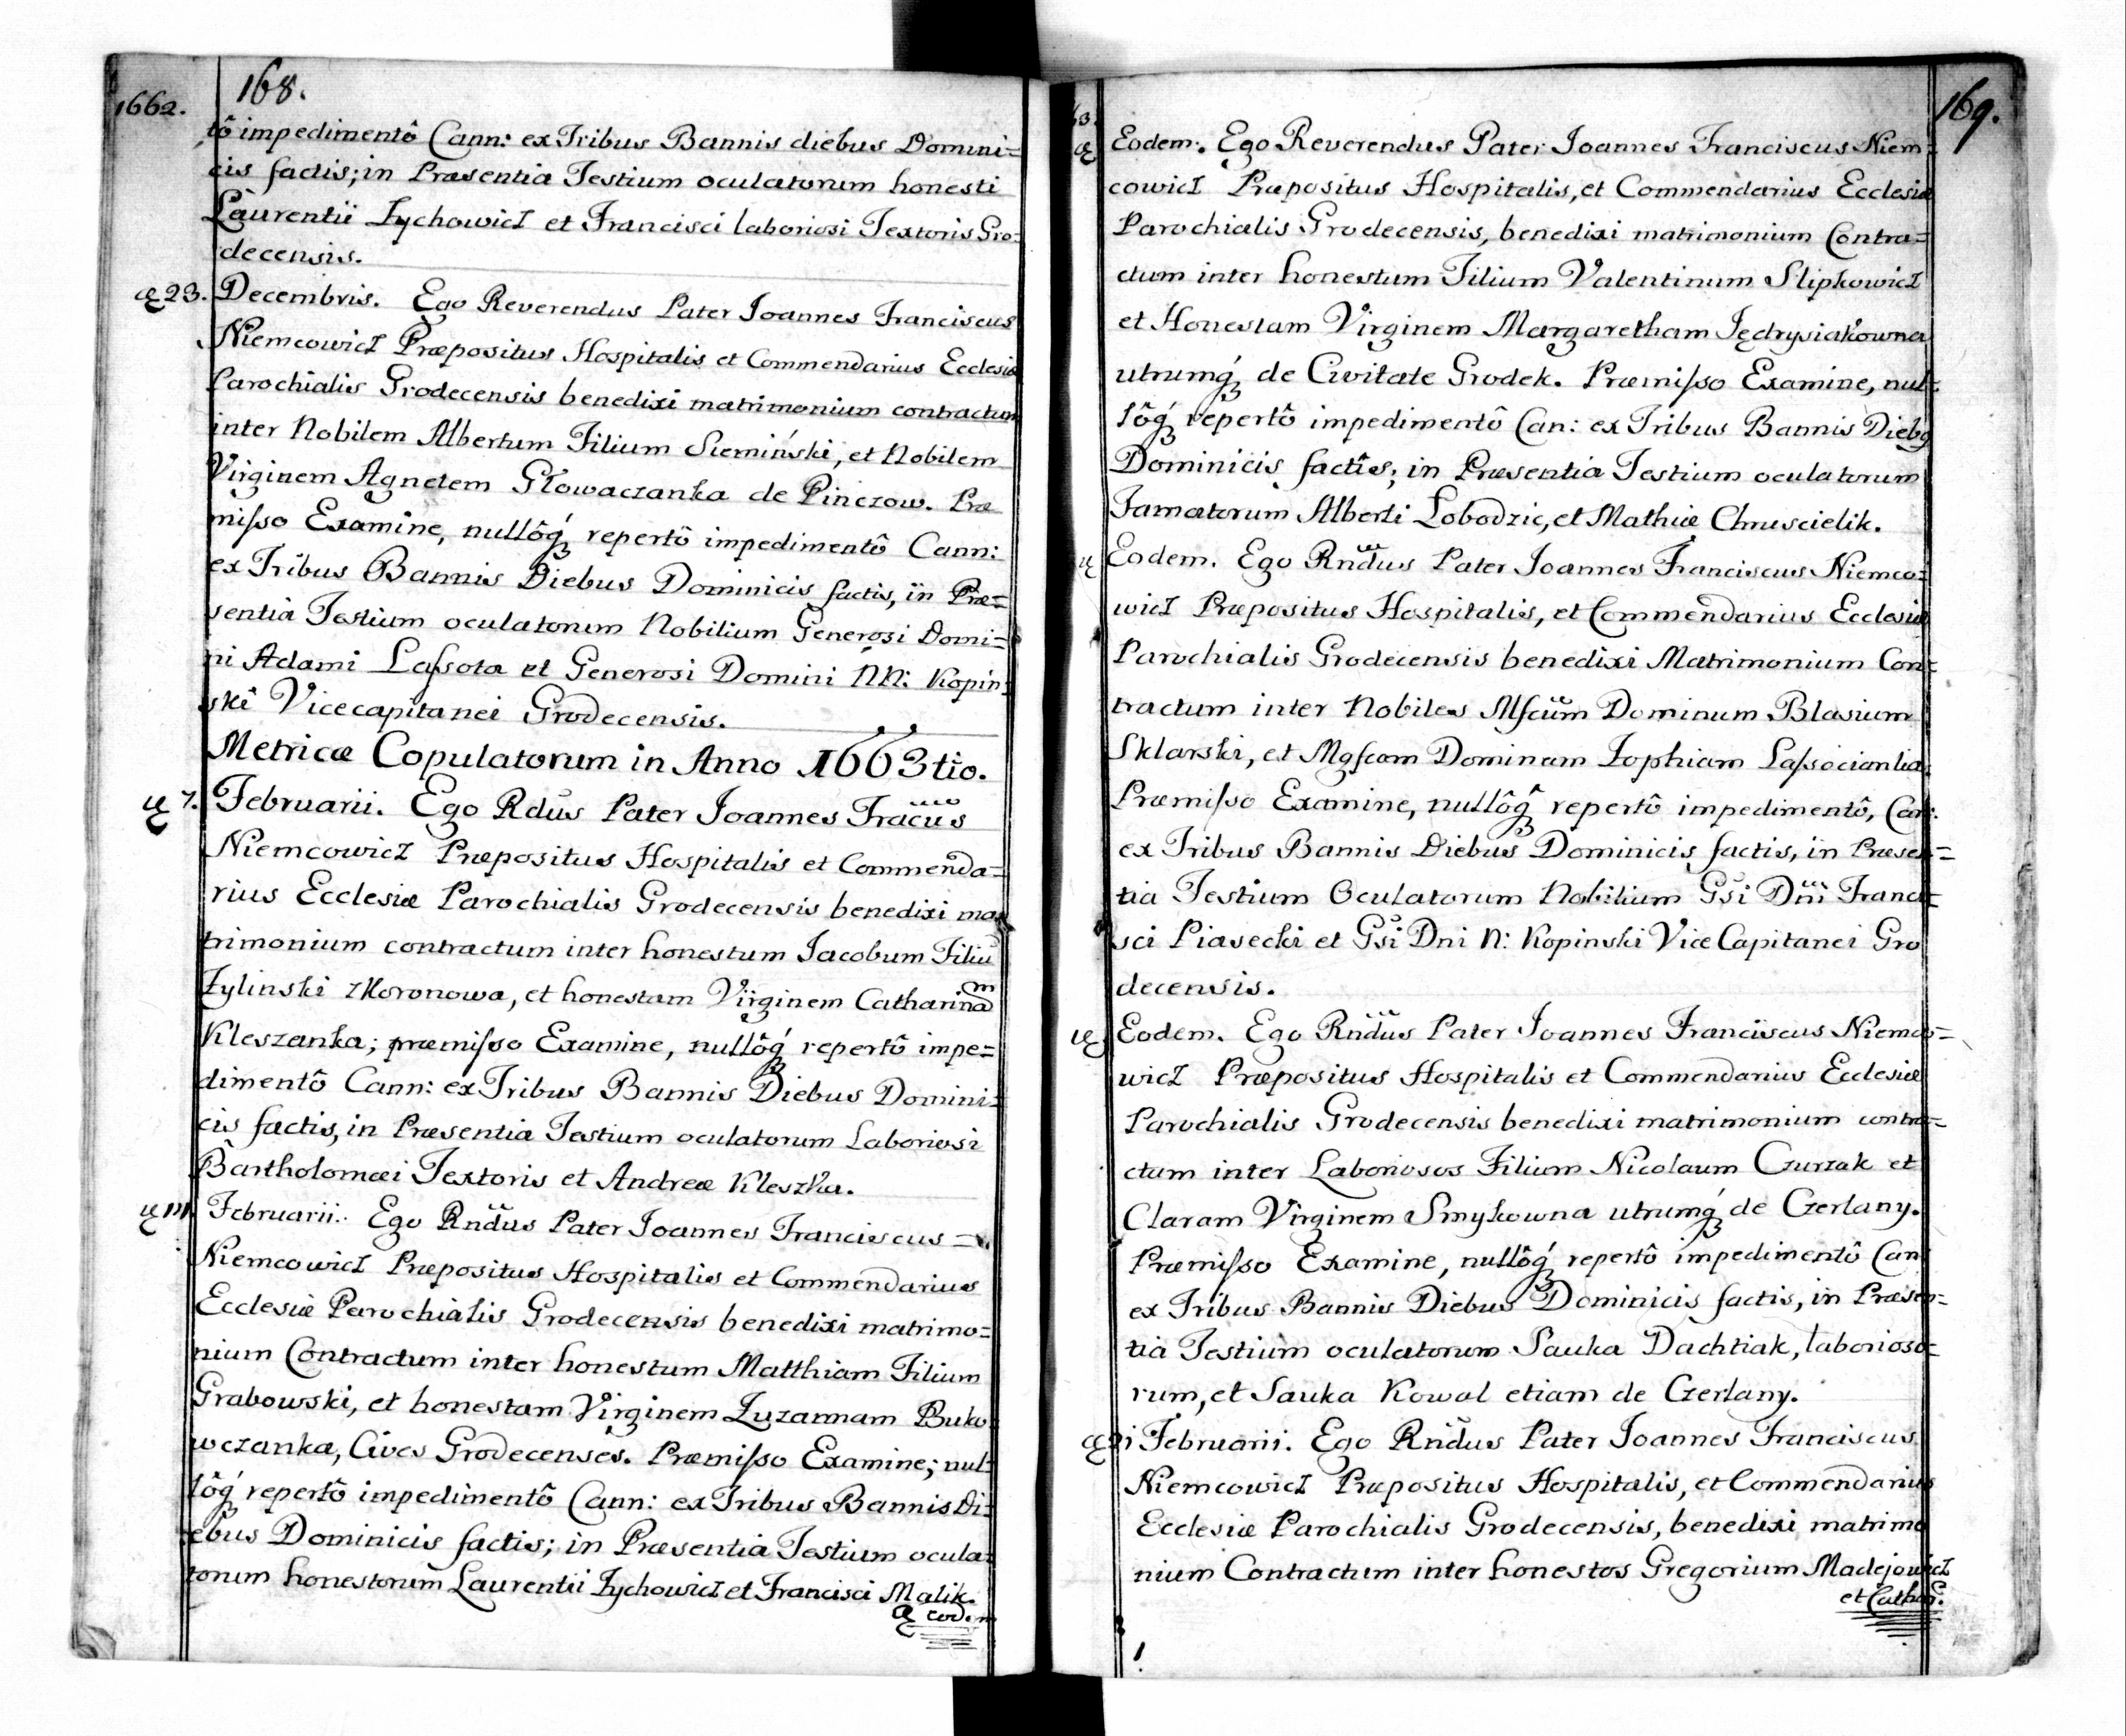 168.
1662.
tô impedimentô Cann: ex Tribus Bannis diebus Domini=
cis factis; in Præsentia Testium oculatorum honesti
Laurentii Zychowicz et Francisci laboriosi Textoris Gro=
decensis.
23. Decembris. Ego Reverendus Pater Joannes Franciscus
Niemcowicz Præpositus Hospitalis et Commendarius Ecclesiæ
Parochialis Grodecensis benedixi matrimonium contractum
inter Nobilem Albertum Filium Siemiński, et Nobilem
Virginem Agnetem Głowaczanka de Pinczow. Præ
misso Examine, nullôq́ repertô impedimentô Cann:
ex Tribus Bannis Diebus Dominicis factis, in Præ=
sentia Testium oculatorum Nobilium Generosi Domi=
ni Adami Lassota et Generosi Domini NN: Kopin=
ski Vicecapitanei Grodecensis.
Metricæ Copulatorum in Anno 1663tio.
7. Februarii. Ego Rdus Pater Joannes Fracus
Niemcowicz Præpositus Hospitalis et Commenda=
rius Ecclesiæ Parochialis Grodecensis benedixi ma
trimonium contractum inter honestum Jacobum Filiū
Zylinski z Koronowa, et honestam Virginem Catharinam
Kleszanka; præmisso Examine, nullôq́ repertô impe=
dimentô Cann: ex Tribus Bannis Diebus Domini=
cis factis, in Præsentia Testium oculatorum Laboriosi
Bartholomæi Textoris et Andreæ Kleszka.
Februarii. Ego Rndus Pater Joannes Franciscus =
Niemcowicz Præpositus Hospitalis et Commendarius
Ecclesiæ Parochialis Grodecensis benedixi matrimo=
nium Contractum inter honestum Matthiam Filium
Grabowski, et honestam Virginem Zuzannam Buko=
wczanka, Cives Grodecenses. Præmisso Examine; nul=
lôq́ repertô impedimentô Cann: ex Tribus Bannis Di=
ebus Dominicis factis; in Præsentia Testium ocula=
torum honestorum Laurentii Zychowicz et Francisci Malik.
169.
Eodem. Ego Reverendus Pater Joannes Franciscus Niem=
cowicz Præpositus Hospitalis, et Commendarius Ecclesiæ
Parochialis Grodecensis, benedixi matrimonium Contra=
ctum inter honestum Filium Valentinum Slipkowicz
et Honestam Virginem Margaretham Jędrysiakowna
utrumq́ de Civitate Grodek. Præmisso Examine, nul=
lôq́ repertô impedimentô Can: ex Tribus Bannis Diebq
Dominicis factis; in Præsentia Testium oculatorum
Famatorum Alberti Lobodzic, et Mathiæ Chmuscielik.
Eodem. Ego Rndus Pater Joannes Franciscus Niemco=
wicz Præpositus Hospitalis, et Commendarius Ecclesiæ
Parochialis Grodecensis benedixi Matrimonium Con=
tractum inter Nobiles Mfcum Dominum Blasium
Sklarski, et Mgfcam Dominam Zophiam Lassocianka.
Præmisso Examine, nullôq̂ repertô impedimentô, Can:
ex Tribus Bannis Diebus Dominicis factis, in Præsen=
tia Testium Oculatorum Nobilium Gsi Dni Franci=
sci Piasecki et Gsi Dni N: Kopinski Vice Capitanei Gro
decensis.
Eodem. Ego Rndus Pater Joannes Franciscus Niemco=
wicz Præpositus Hospitalis et Commendarius Ecclesiæ
Parochialis Grodecensis benedixi matrimonium contra=
ctum inter Laboriosos Filium Nicolaum Czurzak et
Claram Virginem Smykowna utrumq́ de Czerlany.
Præmisso Examine, nullôq́ repertô impedimentô Can
ex Tribus Bannis Diebus Dominicis factis, in Præsen=
tia Testium oculatorum Sauka Dachtiak, laborioso=
rum, et Sauka Kowal etiam de Czerlany.
Februarii. Ego Rndus Pater Joannes Franciscus
Niemcowicz Præpositus Hospitalis, et Commendarius
Ecclesiæ Parochialis Grodecensis, benedixi matrimo
nium Contractum inter honestos Gregorium Madejowicz
et Cathar.